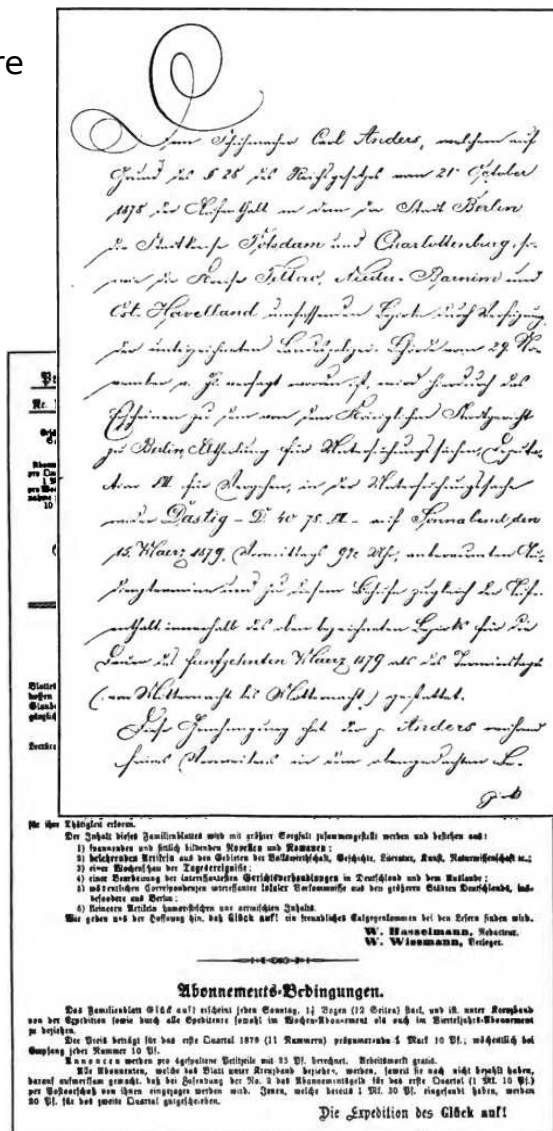 re
Dem Schuhmacher Carl Anders, welchem auf
Grund des § 28 des Reichsgesetzes vom 21. October
1878 der Aufenthalt in dem die Stadt Berlin
die Stadtkreise Potsdam und Charlottenburg, so-
wie die Kreise Teltow, Nieder-Barnim und
Ost-Havelland umfassenden Bezirke durch Verfügung
der unterzeichneten Landespolizei-Behörde vom 29. No-
vember v. Js. versagt worden ist, wird hierdurch das
Erscheinen zu dem von dem Königlichen Stadtgericht
zu Berlin, Abtheilung für Untersuchungssachen, Deputa-
tion VII für Vergehen, in der Untersuchungssache
wider Dastig - D. 40 78. VII - auf Sonnabend den
15. Maerz 1879, Vormittags 9½ Uhr, anberaumten Au-
dienztermine und zu diesem Behufe zugleich der Aufe-
nthalt innerhalb des oben bezeichneten Bezirks für die
Dauer des funfzehnten Maerz 1879 als des Terminstags
(von Mitternacht bis Mitternacht) gestattet.
Diese Genehmigung hat der p. Anders während
seines Verweilens in dem obengedachten Be-
zirk
Nr.
10
für ihre Thätigkeit erkoren.
Der Inhalt dieses Familienblattes wird mit größter Sorgfalt zusammengestellt werden und bestehen aus:
1) spannenden und sittlich bildenden Novellen und Romanen;
2) belehrenden Artikeln aus den Gebieten der Volkswirthschaft, Geschichte, Literatur, Kunst, Naturwissenschaft ꝛc.;
3) einer Wochenschau der Tagesereignisse;
4) einer Bearbeitung der interessantesten Gerichtsverhandlungen in Deutschland und dem Auslande;
5) wöchentlichen Correspondenzen interessanter lokaler Vorkommnisse aus den größeren Städten Deutschlands, ins-
besondere aus Berlin;
6) kleineren Artikeln humoristischen und vermischten Inhalts.
Wir geben uns der Hoffnung hin, daß Glück auf! ein freundliches Entgegenkommen bei den Lesern finden wird.
W. Hasselmann, Redacteur.
W. Wissmann, Verleger.
Abonnements-Bedingungen.
Das Familienblatt Glück auf! erscheint jeden Sonntag, 1½ Bogen (12 Seiten) stark, und ist unter Kreuzband
von der Expedition sowie durch alle Spediteure sowohl im Wochen-Abonnement als auch im Vierteljahrs-Abonnement
zu beziehen.
Der Preis beträgt für das erste Quartal 1879 (11 Nummern) pränumerando 1 Mark 10 Pf.; wöchentlich bei
Empfang jeder Nummer 10 Pf.
Annoncen werden pro 3gespaltene Petitzeile mit 25 Pf. berechnet. Arbeitsmarkt gratis.
Alle Abonnenten, welche das Blatt unter Kreuzband beziehen, werden, soweit sie noch nicht bezahlt haben,
darauf aufmerksam gemacht, daß bei Zusendung der No. 2 das Abonnementsgeld für das erste Quartal (1 Mk. 10 Pf.)
per Postvorschuß von ihnen eingezogen werden wird. Jenen, welche bereits 1 Mk. 30 Pf. eingesandt haben, werden
20 Pf. für das zweite Quartal gutgeschrieben.
Die Expedition des Glück auf!